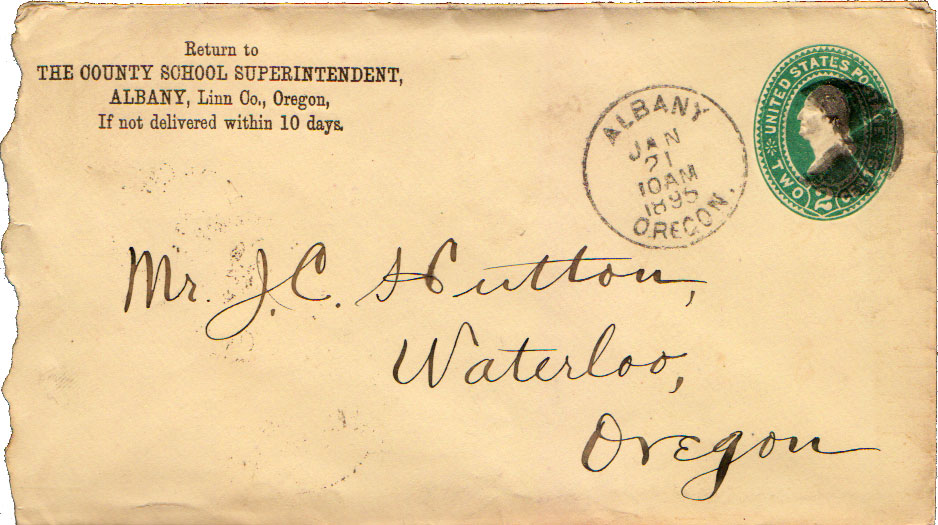 Return to
THE COUNTY SCHOOL SUPERINTENDENT,
ALBANY, Linn Co., Oregon,
If not delivered within 10 days.
ALBANY
JAN
21
10AM
1895
OREGON.
UNITED STATES
TWO
2
Mr. J. C. Hutton,
Waterloo,
Oregon